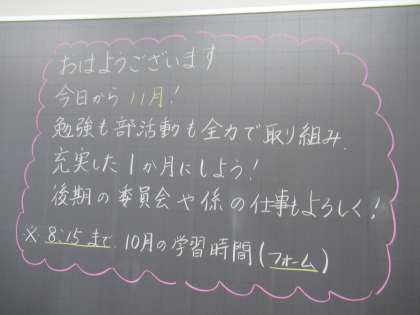 おはようございます
今日から11月!
勉強も部活動も全力で取り組み、
充実した1か月にしよう!
後期の委員会や係の仕事もよろしく!
※8:15まで 10月の学習時間(フォーム)